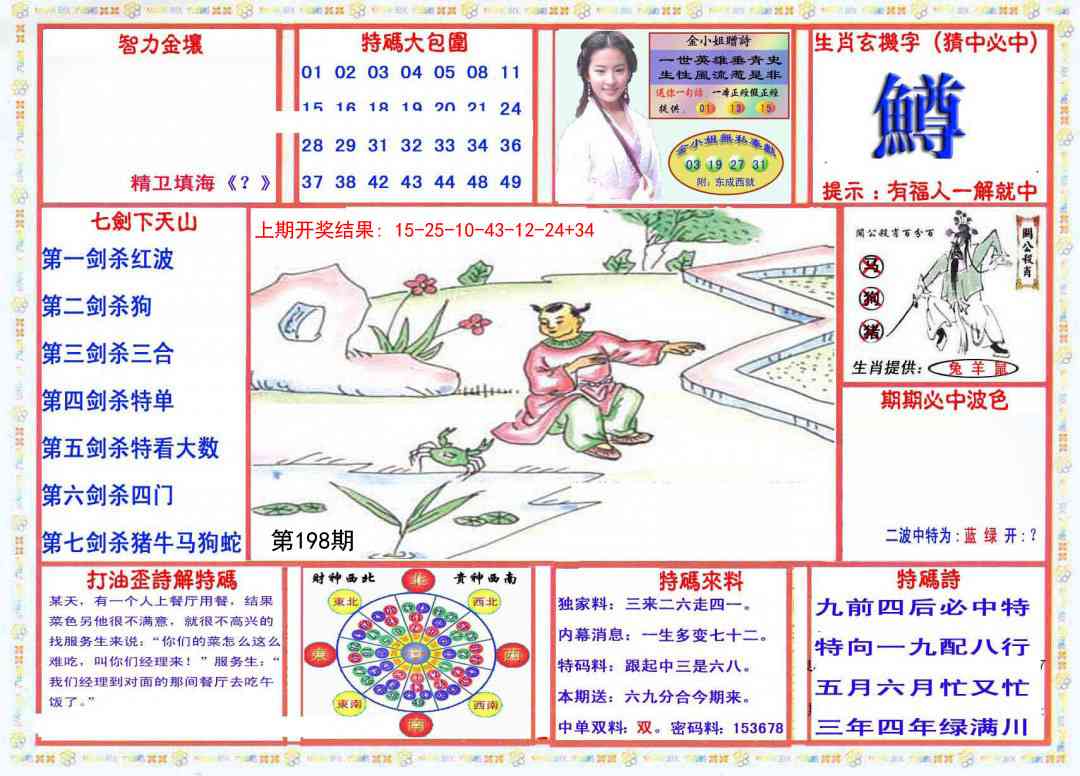 智力金壤
精卫填海《？》
特碼大包圍
01 02 03 04 05 08 11
15 16 18 19 20 21 24
28 29 31 32 33 34 36
37 38 42 43 44 48 49
金小姐赠詩
一世英雄垂青史
生性風流惹是非
送你一句話 一本正经假正经
提供: 01 13 15
金小姐無私奉献
03 19 27 31
附: 东成西就
生肖玄機字（猜中必中）
鱒
提示：有福人一解就中
七劍下天山
第一剑杀红波
第二剑杀狗
第三剑杀三合
第四剑杀特单
第五剑杀特看大数
第六剑杀四门
第七剑杀猪牛马狗蛇
上期开奖结果: 15-25-10-43-12-24+34
第198期
關公殺肖百分百
關公殺肖
马
狗
猪
生肖提供: 兔 羊 鼠
期期必中波色
二波中特为: 蓝 绿 开: ?
打油歪詩解特碼
某天，有一个人上餐厅用餐，结果
菜色另他很不满意，就很不高兴的
找服务生来说：“你们的菜怎么这么
难吃，叫你们经理来！”服务生：“
我们经理到对面的那间餐厅去吃午
饭了。”
財神西北 貴神西南
北
東北 西北
東 西
東南 西南
南
特碼來料
独家料: 三来二六走四一。
内幕消息: 一生多变七十二。
特码料: 跟起中三是六八。
本期送: 六九分合今期来。
中单双料: 双。密码料: 153678
特碼詩
九前四后必中特
特向一九配八行
五月六月忙又忙
三年四年绿满川